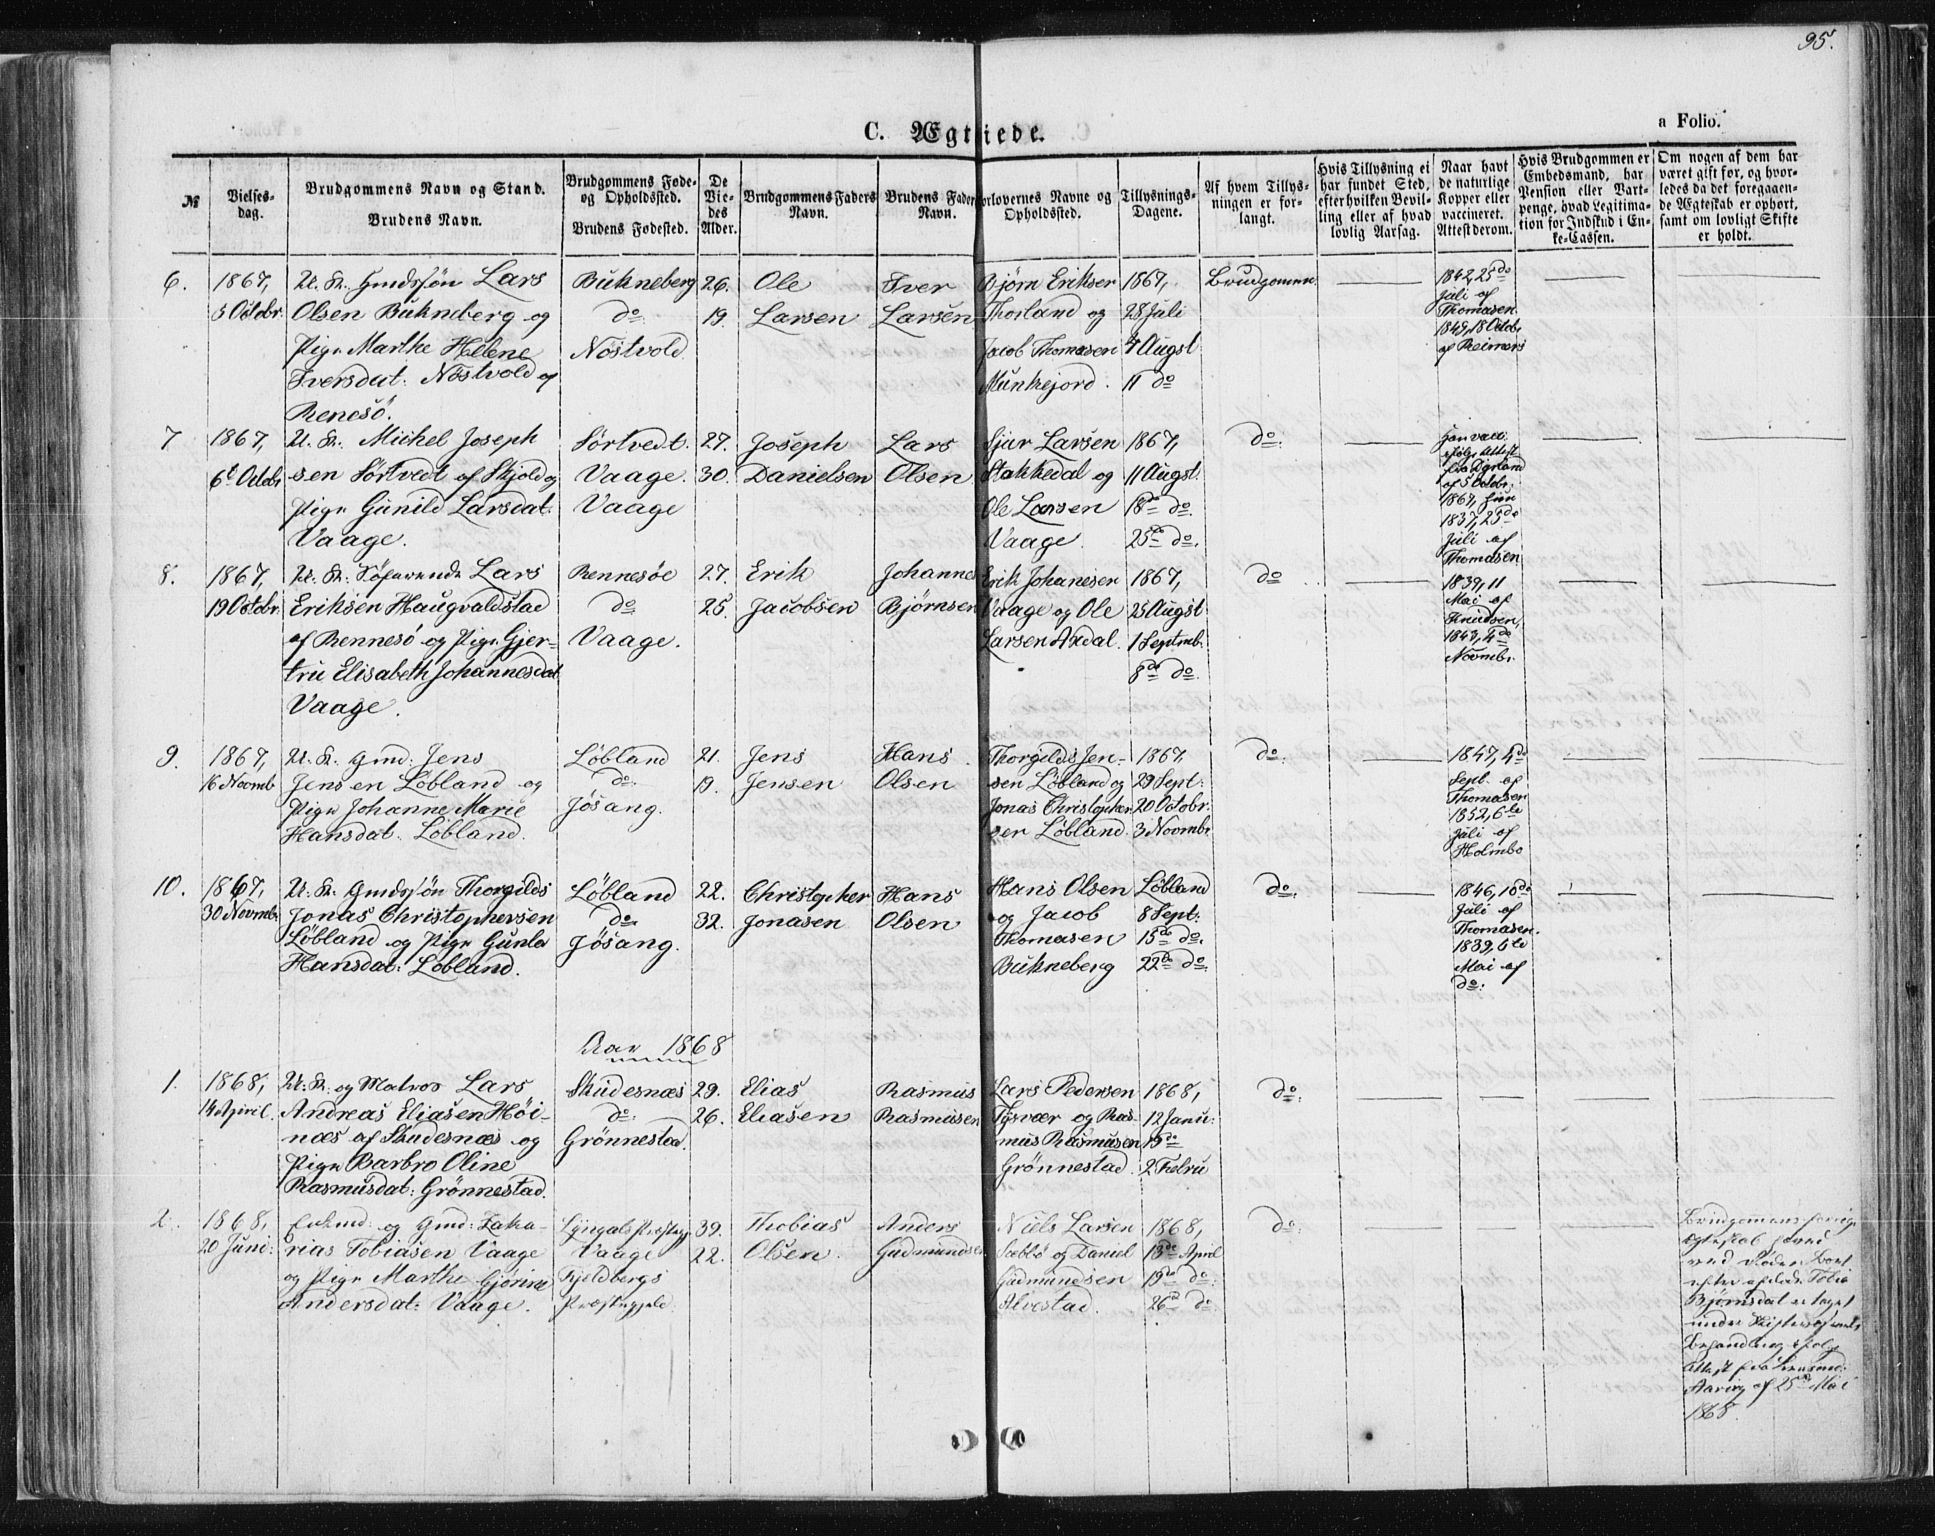 95.
C. Ægteviede.
a Folio.
№
Vielses-
dag.
Brudgommens Navn og Stand.
Brudens Navn.
Brudgommens Føde-
og Opholdssted.
Brudens Fødested.
De
Vie-
des
Alder.
Brudgommens Faders
Navn.
Brudens Faders
Navn.
Forlovernes Navne og
Opholdssted.
Tillysnings-
Dagene.
Af hvem Tillys-
ningen er for-
langt.
Hvis Tillysning ei
har fundet Sted,
efter hvilken Bevil-
ling eller af hvad
lovlig Aarsag.
Naar havt
de naturlige
Kopper eller
vaccineret.
Attest derom.
Hvis Brudgommen er
Embedsmand, har
Pension eller Vart-
penge, hvad Legitima-
tion for Indskud i En-
ke-Cassen.
Om nogen af dem har
været gift før, og hvor-
ledes da det foregaaen-
de Ægteskab er ophørt,
samt om lovligt Skifte
er holdt.
6.
1867,
5 Octobr.
U. K. Gmdssøn Lars
Olsen Bukneberg og
Pige Marthe Helene
Iversdat: Nöstvold af
Renesö.
Bukneberg
do
Nöstvold
26.
19.
Ole
Larsen
Iver
Larsen
Bjørn Eriksen
Thorland og
Jacob Thomasen
Munkejord.
1867,
28 Juli
4 Augst
11 do
Brudgomen
1842, 25de
Juli af
Thomasen
1849, 18 Octobr
af Reimers
7
1867,
6te Octobr
U. K. Michel Joseph
sen Sörtvedt af Skjold og
Pige Gunild Larsdat:
Vaage.
Sörtvedt.
Vaage.
Vaage
27.
30.
Joseph
Danielsen
Lars
Olsen
Sjur Larsen
Stakkedal og
Ole Larsen
Vaage.
1867,
11 Augst.
18de do.
25de do.
do:
af 5 Octobr.
1867, hun
1837, 25de
Juli af
Thomasen
8.
1867,
19 Octobr.
U. K. Söfarende Lars
Eriksen Haugvaldstad
af Rennesö og Pige Gjer-
tru Elisabeth Johannesdat
Vaage.
Rennesöe
do
Vaage.
27.
25.
Erik
Jacobsen
Johannes
Bjørnsen
Erik Johanesen
Vaage og Ole
Larsen Axdal.
1867,
25 Augst
1 Septmb.
8de do.
do
1839, 11
Mai af
Knudsen,
1843, 4de
Novmbr.
9.
1867,
16 Novmb
U. K. Gmd. Jens
Jensen Löbland og
Pige Johanne Marie
Hansdat. Löbland.
Löbland
do:
Jösang.
21.
19.
Jens
Jensen
Hans
Olsen
Thorgilds Jen-
sen Löbland og
Jonas Christopher
sen Löbland.
1867
29 Sept:
20 Octobr.
3 Novmbr
do:
1847, 4de
Sept. af
Thomasen
1852, 6te
Juli af
Holmbo
10.
1867,
30 Novmbr
U. K. Gmdssøn Thorgilds
Jonas Christophersen
Löbland og Pige Gunla
Hansdat: Löbland.
Löbland
do
Jösang.
22.
32.
Christopher
Jonasen
Hans
Olsen
Hans Olsen Löbland
og Jacob
Thomasen
Bukneberg
8 Sept:
15de do.
22de do.
do:
1846, 10de
Juli af
Thomasen.
1839, 6te
Mai af
do:
Aar 1868
1.
1868,
14 April.
U. K. og Matros Lars
Andreas Eliasen Höi-
næs af Skudesnæs og
Pige Barbro Oline
Rasmusdat: Grönnestad.
Skudesnæs
do:
Grönnestad.
29.
26.
Elias
Eliasen
Rasmus
Rasmusen
Lars Pedersen
Tysvær og Ras-
mus Rasmusen
Grönnestad.
1868,
12 Janu:
19de
2 Febru
do:
2.
1868,
20 Juni:
Enkmd: og Gmd: Zaka-
rias Tobiasen Vaage
og Pige Marthe Gjörine
Andersdat: Vaage.
Vaage
Fjeldbergs
Præstegjeld.
39.
22.
Thobias
Olsen.
Anders
Gudmundsen
Niels Larsen
og Daniel
Gudmundsen
Alvestad.
1868,
13de April
19de do:
26de do
do:
Brudgomens forrige
Ægteskab hævet
ved Döden. Boet
efter afdöde Tobia
Bjørnsdat er taget
under Skifterettens
Behandling ifølge
Attest fra Lensmd:
Aarvig af 25de Mai
1868.